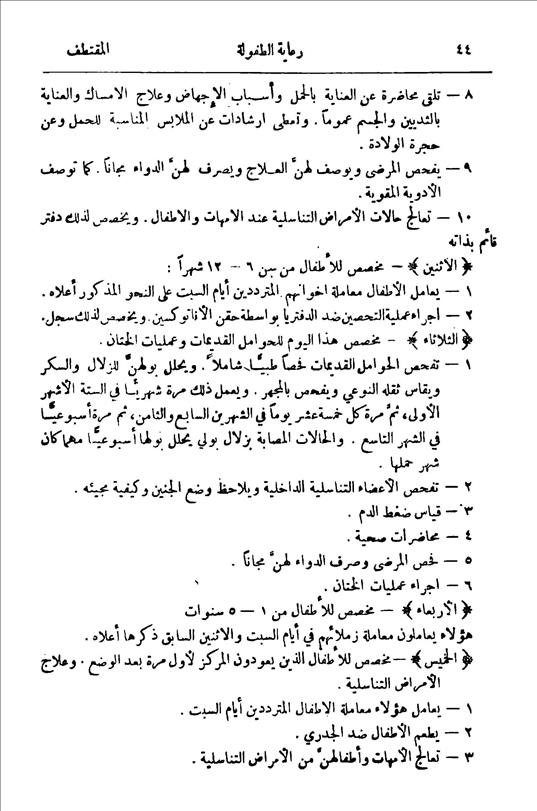 ٤٤ رعاية الطفولة المقتطف
٨ — تلقى محاضرة عن العناية بالحمل وأسباب الإجهاض وعلاج الامساك والعناية
بالثديين والجسم عموماً . وتعطى ارشادات عن الملابس المناسبة للحمل وعن
حجرة الولادة .
٩ — يفحص المرضى ويوصف لهنَّ العلاج ويصرف لهنَّ الدواء مجاناً . كما توصف
الأدوية المقوية .
١٠ — تعالج حالات الأمراض التناسلية عند الامهات والاطفال . ويخصص لذلك دفتر
قائم بذاته
﴿ الاثنين ﴾ — مخصص للأطفال من سن ٦ — ١٢ شهراً :
١ — يعامل الأطفال معاملة اخوانهم المترددين أيام السبت على النحو المذكور أعلاه .
٢ — أجراء عملية التحصين ضد الدفتريا بواسطة حقن الأناتوكسين . ويخصص لذلك سجل .
﴿ الثلاثاء ﴾ — مخصص هذا اليوم للحوامل القديمات وعمليات الختان .
١ — تفحص الحوامل القديمات فحصاً طبيًّا شاملاً . ويحلل بولهنَّ للزلال والسكر
ويقاس ثقله النوعي ويفحص بالمجهر . ويعمل ذلك مرة شهريًّا في الستة الأشهر
الأولى ، ثمَّ مرة كل خمسة عشر يوماً في الشهرين السابع والثامن ، ثم مرة أسبوعيًّا
في الشهر التاسع . والحالات المصابة بزلال بولي يحلل بولها أسبوعيًّا مهما كان
شهر حملها .
٢ — تفحص الأعضاء التناسلية الداخلية ويلاحظ وضع الجنين وكيفية مجيئه .
٣ — قياس ضغط الدم .
٤ — محاضرات صحية .
٥ — فحص المرضى وصرف الدواء لهنَّ مجاناً .
٦ — اجراء عمليات الختان .
﴿ الأربعاء ﴾ — مخصص للأطفال من ١ — ٥ سنوات
هؤلاء يعاملون معاملة زملائهم في أيام السبت والاثنين السابق ذكرها أعلاه .
﴿ الخميس ﴾ — مخصص للأطفال الذين يعودون المركز لأول مرة بعد الوضع . وعلاج
الأمراض التناسلية .
١ — يعامل هؤلاء معاملة الاطفال المترددين أيام السبت .
٢ — يطعم الأطفال ضد الجدري .
٣ — تعالج الامهات وأطفالهنَّ من الأمراض التناسلية .